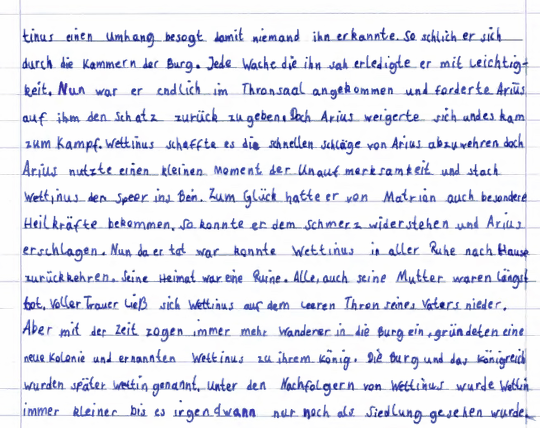 tinus einen Umhang besogt damit niemand ihn erkannte. So schlich er sich
durch die Kammern der Burg. Jede Wache die ihn sah erledigte er mit Leichtig-
keit. Nun war er endlich im Thronsaal angekommen und forderte Arius
auf ihm den Schatz zurück zugeben. Doch Arius weigerte sich und es kam
zum Kampf. Wettinus schaffte es die schnellen schläge von Arius abzuwehren doch
Arius nutzte einen kleinen Moment der Unaufmerksamkeit und stach
Wettinus den Speer ins Bein. Zum Glück hatte er von Matrian auch besondere
Heilkräfte bekommen. So konnte er dem Schmerz widerstehen und Arius
erschlagen. Nun da er tot war konnte Wettinus in aller Ruhe nach Hause
zurückkehren. Seine Heimat war eine Ruine. Alle, auch seine Mutter waren längst
tot. Voller Trauer ließ sich Wettinus auf dem leeren Thron seines Vaters nieder.
Aber mit der Zeit zogen immer mehr Wanderer in die Burg ein, gründeten eine
neue Kolonie und ernannten Wettinus zu ihrem König. Die Burg und das Königreich
wurden später Wettin genannt. Unter den Nachfolgern von Wettinus wurde Wettin
immer kleiner bis es irgendwann nur noch als Siedlung gesehen wurde.